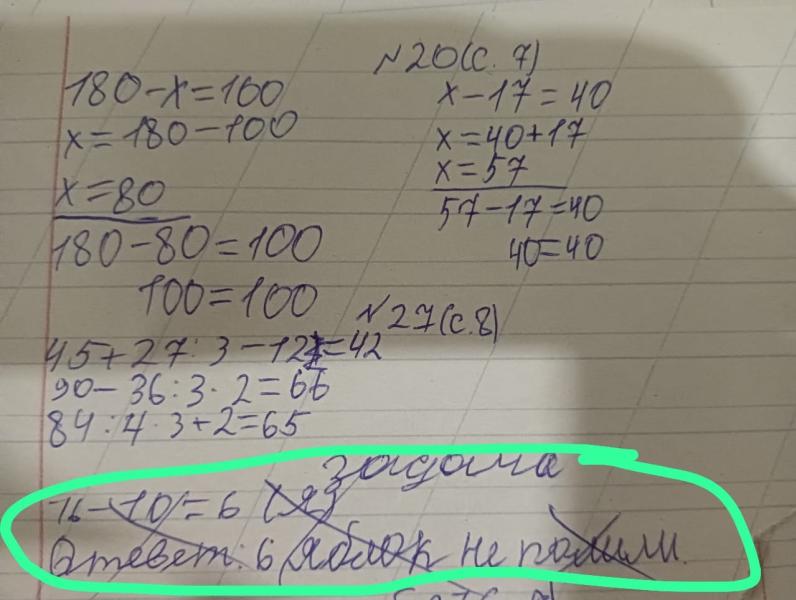 180-x=100
x=180-100
x=80
180-80=100
100=100
№20(с. 7)
x-17=40
x=40+17
x=57
57-17=40
40=40
№27(с.8)
45+27:3-12=42
90-36:3·2=66
84:4·3+2=65
задача
16-10=6 (я)
Ответ: 6 яблок не